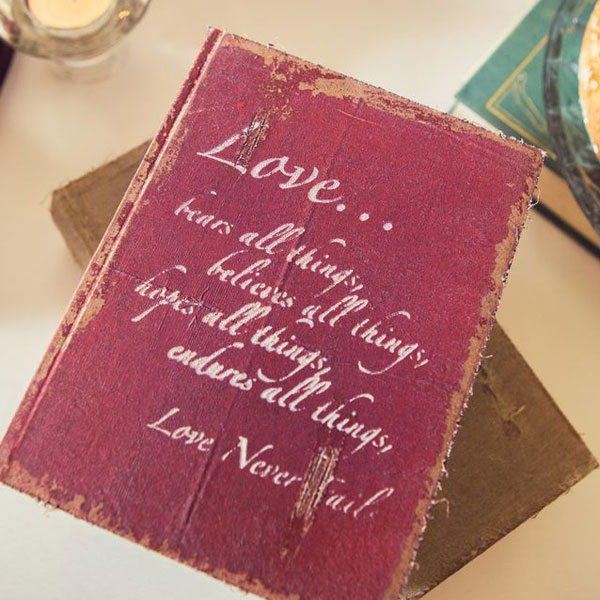 Love...
bears all things,
believes all things,
hopes all things,
endures all things,
Love Never Fail.